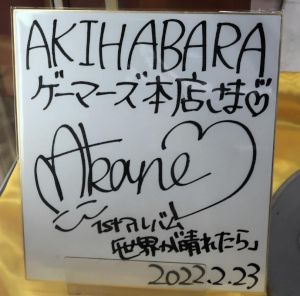 AKIHABARA
ゲーマーズ本店さま♡
Akane♡
1stアルバム
「世界が晴れたら」
2022.2.23